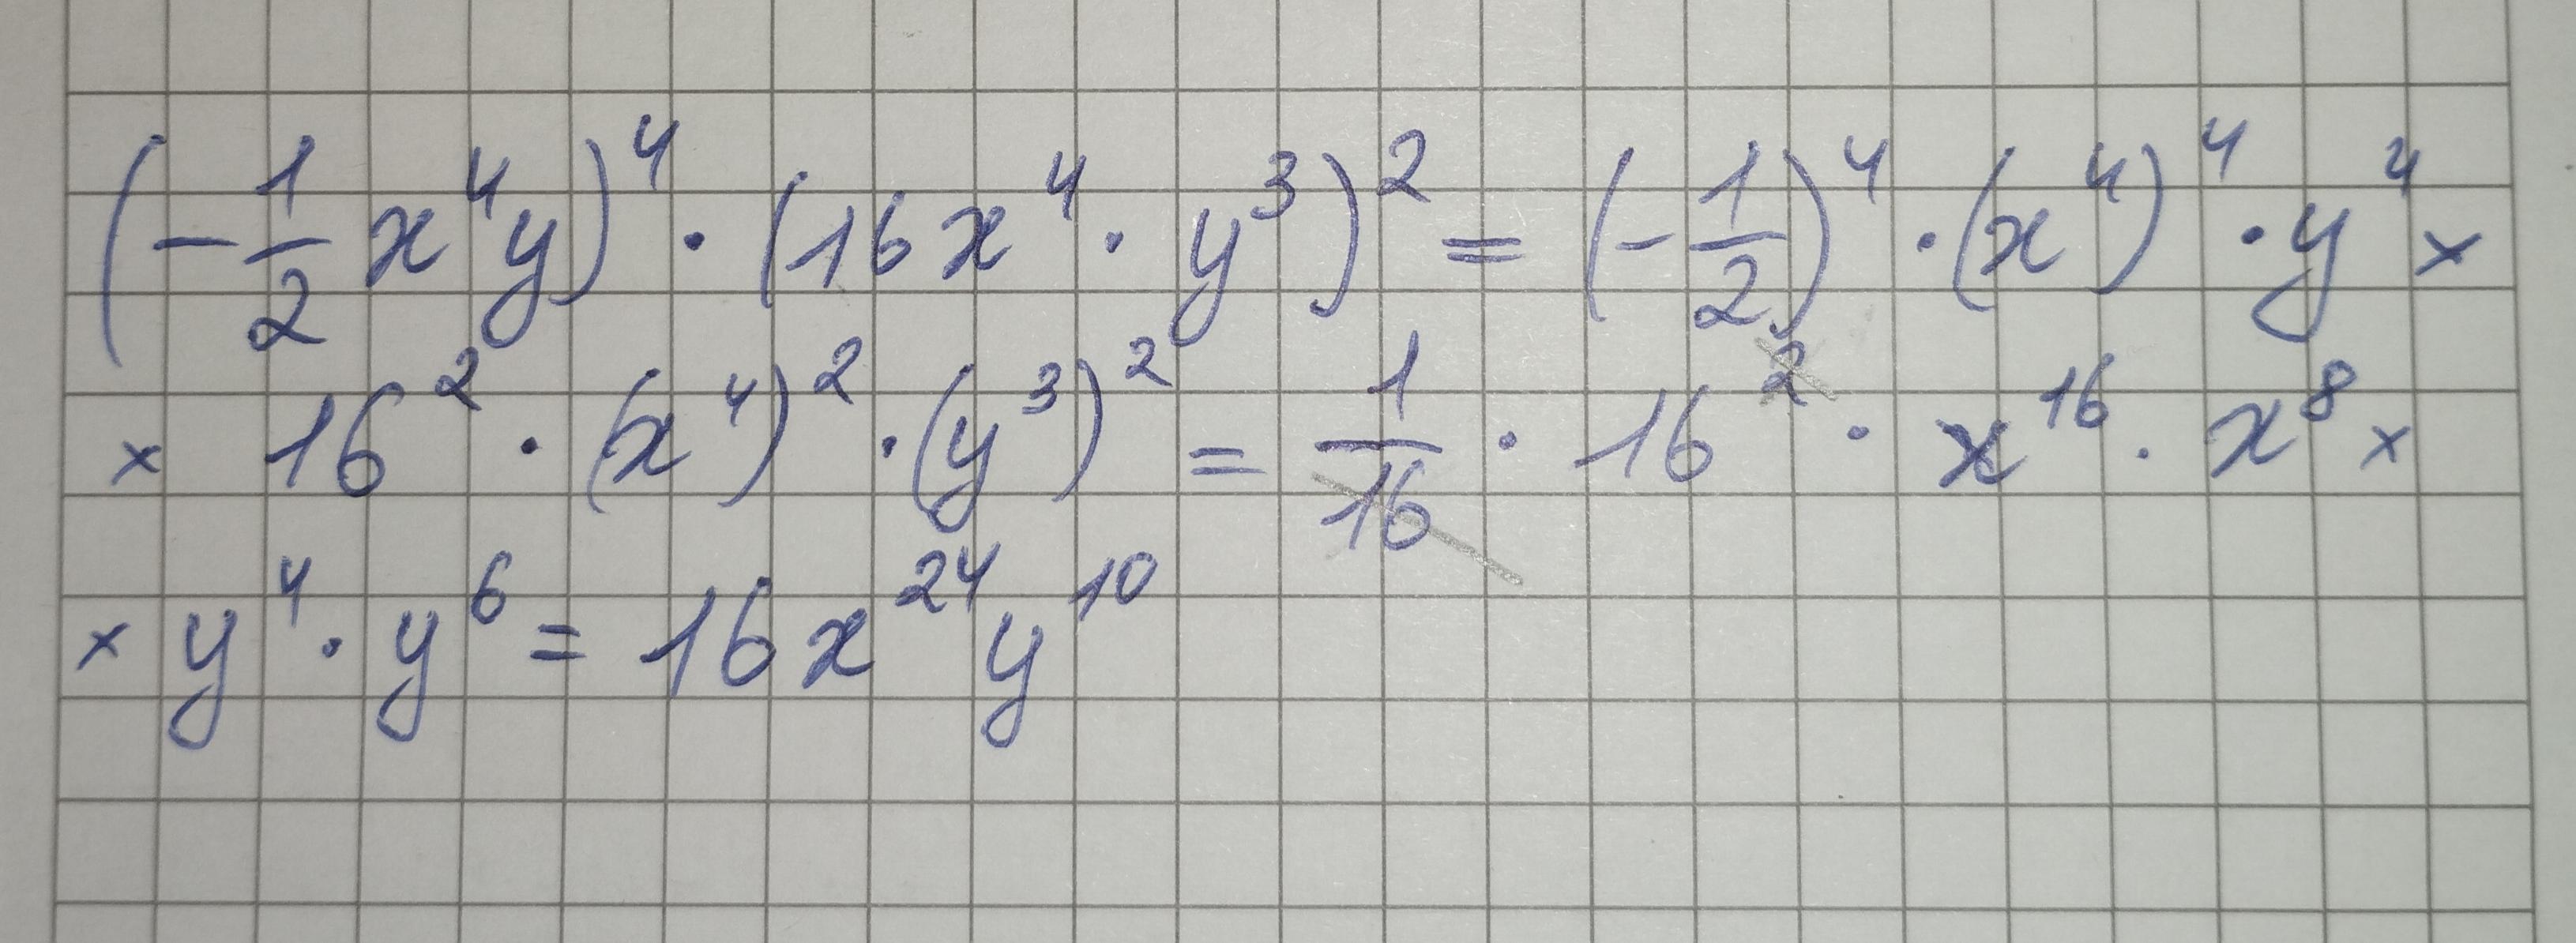 (-1/2 x⁴y)⁴ · (16x⁴ · y³)² = (-1/2)⁴ · (x⁴)⁴ · y⁴ ×
× 16² · (x⁴)² · (y³)² = 1/16 · 16² · x¹⁶ · x⁸ ×
× y⁴ · y⁶ = 16x²⁴y¹⁰